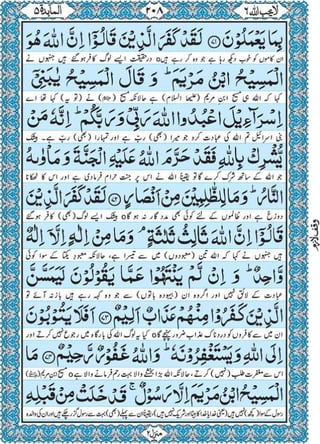 لایحب اللہ ۶ ۲۰۸ المآئدۃ ۵
بِمَا يَعْمَلُوْنَ ﴿۷۱﴾ لَقَدْ كَفَرَ الَّذِيْنَ قَالُوْۤا اِنَّ اللّٰهَ هُوَ
ان کاموں کو خوب دیکھ رہا ہے جو وہ کر رہے ہیں درحقیقت ایسے لوگ کافر ہوگئے ہیں جنہوں نے
الْمَسِيْحُ ابْنُ مَرْيَمَ ؕ وَ قَالَ الْمَسِيْحُ يٰبَنِيْۤ
کہا کہ اللہ ہی مسیح ابن مریم (علیہما السلام) ہے حالانکہ مسیح نے (تو یہ) کہا تھا اے
اِسْرَآءِيْلَ اعْبُدُوا اللّٰهَ رَبِّيْ وَ رَبَّكُمْ ؕ اِنَّهٗ مَنْ
بنی اسرائیل تم اللہ کی عبادت کرو جو میرا (بھی) رب ہے اور تمہارا (بھی) رب ہے۔ بیشک
يُّشْرِكْ بِاللّٰهِ فَقَدْ حَرَّمَ اللّٰهُ عَلَيْهِ الْجَنَّةَ وَ مَاْوٰىهُ
جو اللہ کے ساتھ شرک کرے گا تو یقیناً اللہ نے اس پر جنت حرام فرما دی ہے اور اس کا ٹھکانا
النَّارُ ؕ وَ مَا لِلظّٰلِمِيْنَ مِنْ اَنْصَارٍ ﴿۷۲﴾ لَقَدْ كَفَرَ الَّذِيْنَ
دوزخ ہے اور ظالموں کے لئے کوئی بھی مددگار نہ ہوگا بیشک ایسے لوگ (بھی) کافر ہوگئے
قَالُوْۤا اِنَّ اللّٰهَ ثَالِثُ ثَلٰثَةٍ ۘ وَ مَا مِنْ اِلٰهٍ اِلَّاۤ اِلٰهٌ
ہیں جنہوں نے کہا کہ اللہ تین (معبودوں) میں سے تیسرا ہے، حالانکہ معبود یکتا کے سوا کوئی
وَّاحِدٌ ؕ وَ اِنْ لَّمْ يَنْتَهُوْا عَمَّا يَقُوْلُوْنَ لَيَمَسَّنَّ
عبادت کے لائق نہیں اور اگر وہ ان (بیہودہ باتوں) سے جو وہ کہہ رہے ہیں باز نہ آئے تو
الَّذِيْنَ كَفَرُوْا مِنْهُمْ عَذَابٌ اَلِيْمٌ ﴿۷۳﴾ اَفَلَا يَتُوْبُوْنَ
ان میں سے کافروں کو دردناک عذاب ضرور پہنچے گا کیا یہ لوگ اللہ کی بارگاہ میں رجوع نہیں کرتے اور
اِلَى اللّٰهِ وَ يَسْتَغْفِرُوْنَهٗ ؕ وَ اللّٰهُ غَفُوْرٌ رَّحِيْمٌ ﴿۷۴﴾ مَا
اس سے مغفرت طلب (نہیں) کرتے، حالانکہ اللہ بڑا بخشنے والا بہت رحم فرمانے والا ہے مسیح ابن مریم
الْمَسِيْحُ ابْنُ مَرْيَمَ اِلَّا رَسُوْلٌ ۚ قَدْ خَلَتْ مِنْ قَبْلِهِ
وقف لازم
منزل ۲